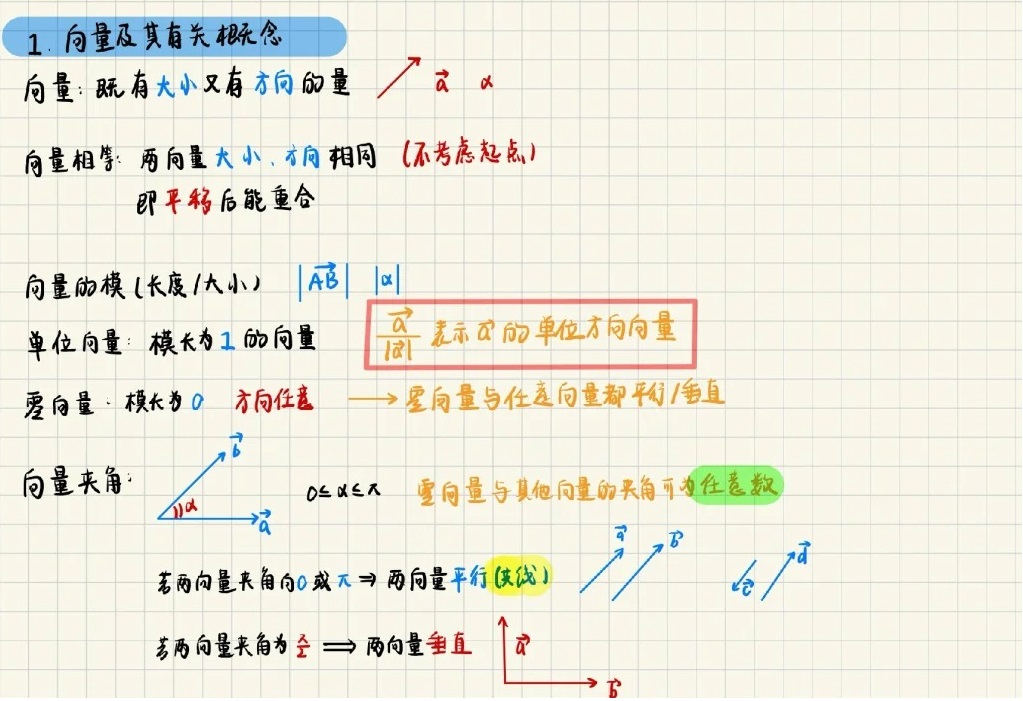 1. 向量及其有关概念
向量: 既有大小又有方向的量 a⃗ α
向量相等: 两向量大小、方向相同 (不考虑起点)
即平移后能重合
向量的模 (长度/大小) |AB⃗| |α|
单位向量: 模长为1的向量 a⃗/|a⃗| 表示a⃗的单位方向向量
零向量: 模长为0 方向任意 → 零向量与任意向量都平行/垂直
向量夹角: b⃗ α a⃗ 0≤α≤π 零向量与其他向量的夹角可为任意数
若两向量夹角向0或π ⇒ 两向量平行(共线) a⃗ b⃗ c⃗ d⃗
若两向量夹角为π/2 ⟹ 两向量垂直 a⃗ b⃗